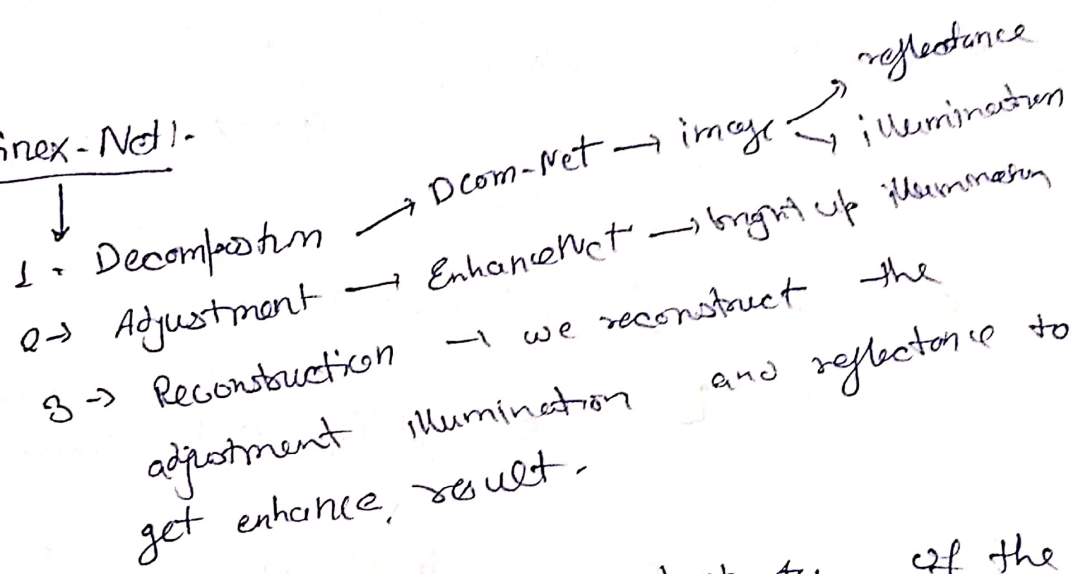 inex-Net:-
1. Decomposition → Dcom-Net → image → reflectance
→ illumination
2→ Adjustment → EnhanceNet → bright up illumination
3→ Reconstruction → we reconstruct the
adjustment illumination and reflectance to
get enhance, result.
of the